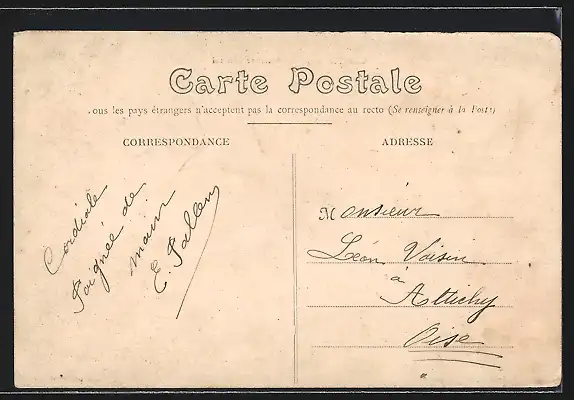 Carte Postale
ous les pays étrangers n'acceptent pas la correspondance au recto (Se renseigner à la Poste)
CORRESPONDANCE
ADRESSE
Cordiale
Poignée de
main
E.
Monsieur
Léon Voisin
à
Attichy
Oise